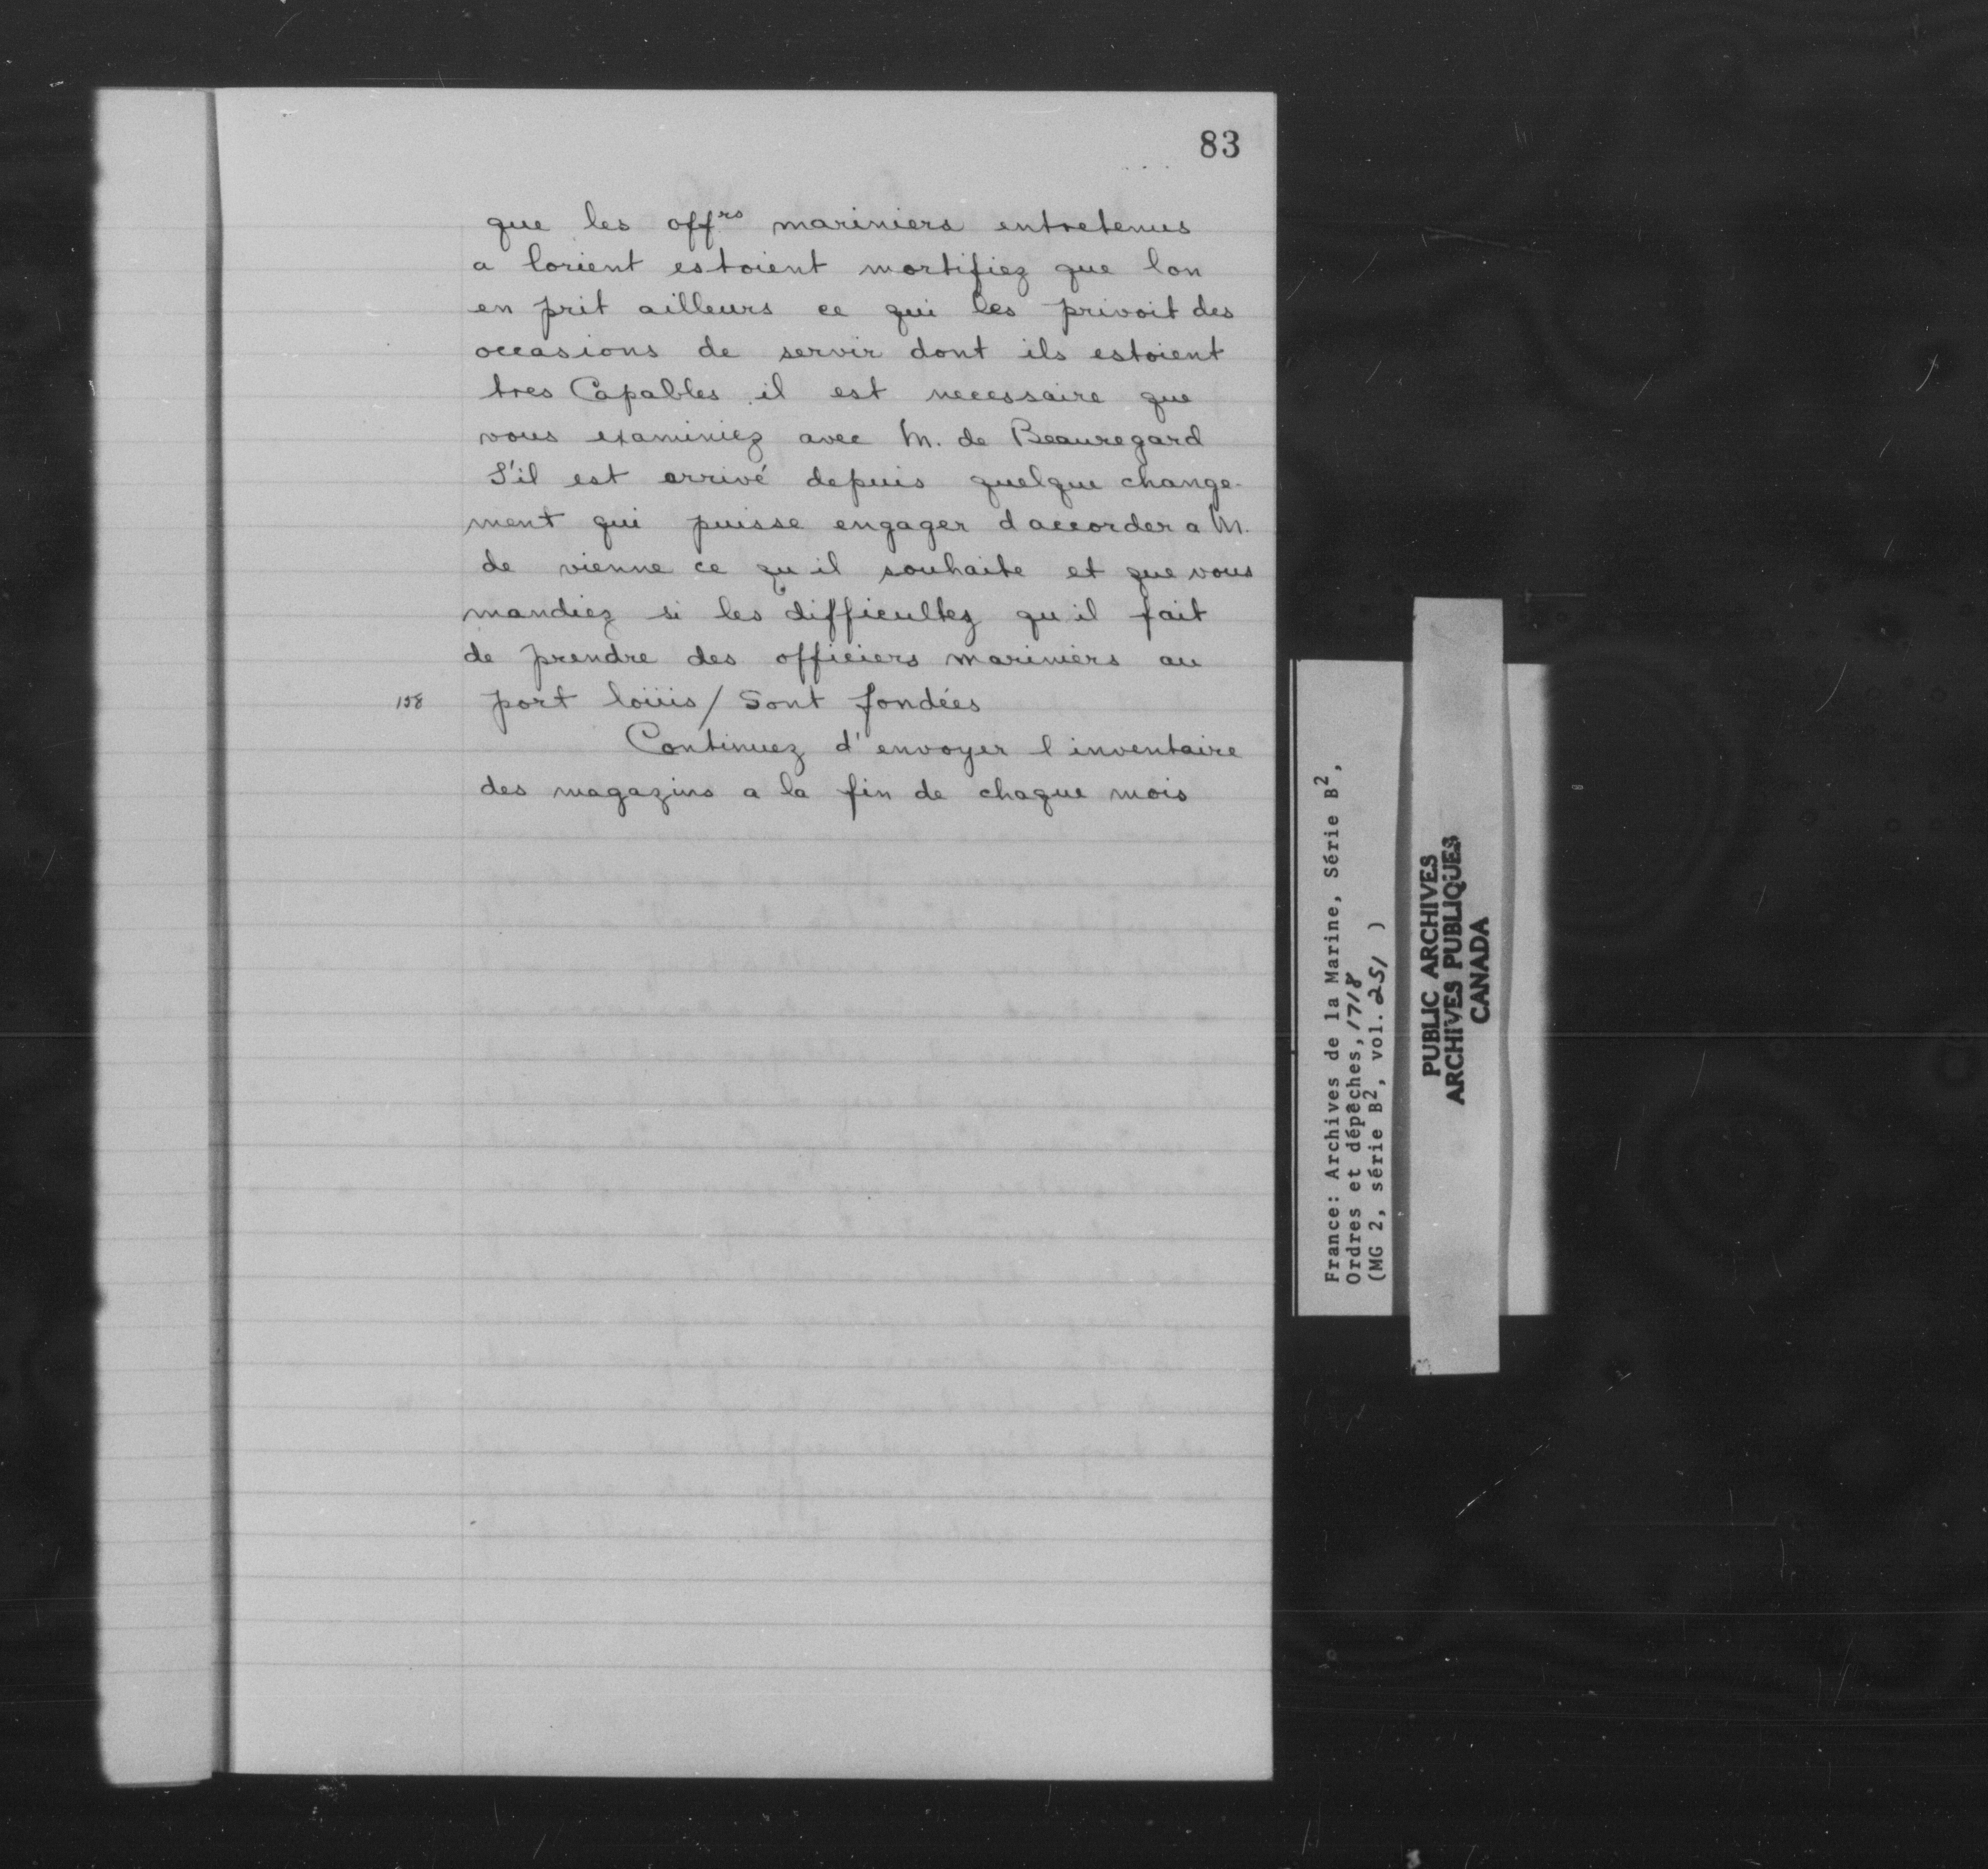 83
que les off<sup>rs</sup> mariniers entretenus
a lorient estoient mortifiez que lon
en prit ailleurs ce qui les privoit des
occasions de servir dont ils estoient
tres Capables il est necessaire que
vous examiniez avec M. de Beauregard
S'il est arrivé depuis quelque change-
ment qui puisse engager daccorder a M.
de vienne ce qu il souhaite et que vous
mandiez si les difficultez qu il fait
de prendre des officiers mariniers au
158 port loüis / Sont fondées
Continuez d'envoyer l inventaire
des magazins a la fin de chaque mois
France: Archives de la Marine, Série B²,
Ordres et dépêches, 1718
(MG 2, série B², vol. 251 )
PUBLIC ARCHIVES
ARCHIVES PUBLIQUES
CANADA